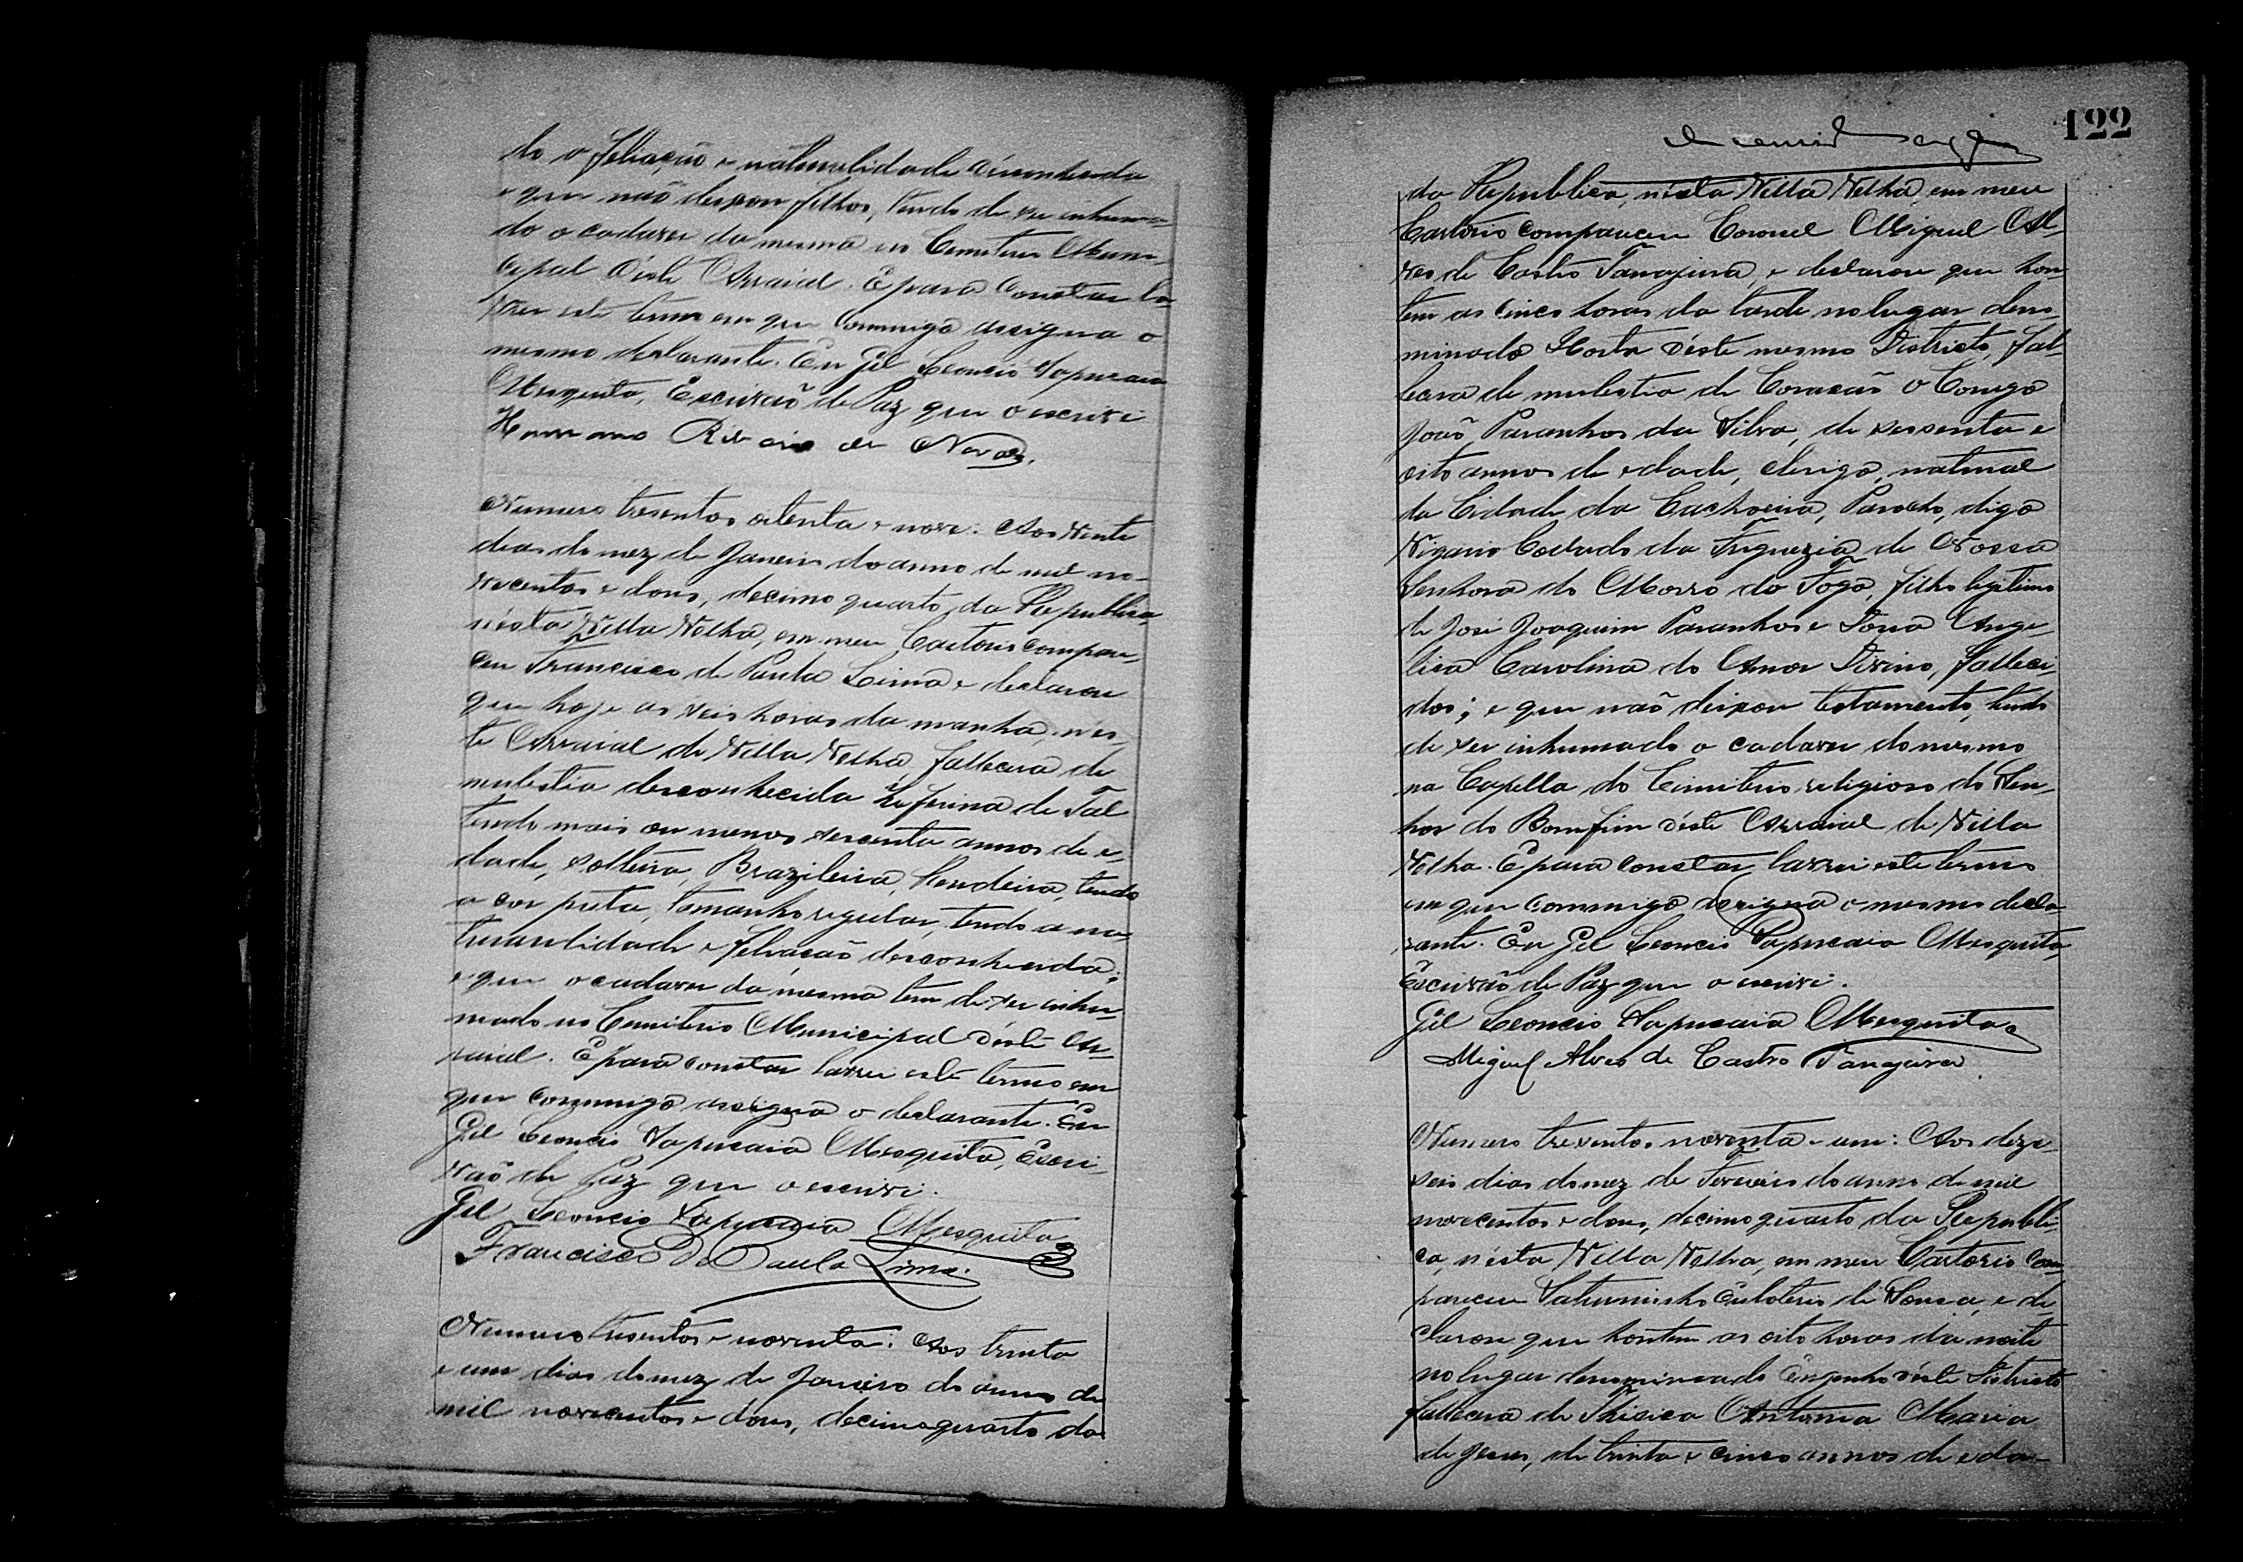 do a filiação e naturalidade disconhecida
e que não deixou filhos, tendo de ser inhuma-
do o cadaver da mesma no Cemiterio Muni-
cipal d'este Arraial. E para constar la-
vrei este termo em que commigo assigna o
mesmo declarante. Eu Gil Leoncio Sapucaia
Mesquita, Escrivão de Paz que o escrevi
Ribeiro de Novaes.
Numero tresentos oitenta e nove: Aos vinte
dias do mez de Janeiro do anno de mil no-
vecentos e dous, decimo quarto da Republica,
n'esta Villa Velha, em meu Cartorio compare-
ceu Francisco de Paula Lima e declarou
que hoje as seis horas da manhã, n'es-
te Arraial de Villa Velha fallecera de
molestia desconhecida Zeferina de Tal
tendo mais ou menos sessenta annos de e-
dade, solteira, Brazileira, rendeira, tendo
a cor preta, tamanho regular, tendo a na-
turalidade e filiação desconhecida;
e que o cadaver da mesma tem de ser inhu-
mado no Cemiterio Municipal d'este Ar-
raial. E para constar lavrei este termo em
que commigo assigna o declarante. Eu
Gil Leoncio Sapucaia Mesquita, Escri-
vão de Paz que o escrevi.
Gil Leoncio Sapucaia Mesquita
Francisco De Paula Lima.
Numero tresentos e noventa: Aos trinta
e um dias do mez de Janeiro do anno de
mil novecentos e dous, decimo quarto da
122
da Republica, n'esta Villa Velha, em meu
Cartorio compareceu Coronel Miguel Al-
ves de Castro Tanajura, e declarou que hon-
tem as cinco horas da tarde no lugar deno-
minado Horta d'este mesmo Districto, fal-
lecera de molestia de Coração o Conego
João Paranhos da Silva, de sessenta e
oito annos de edade, clerigo, natural
da Cidade da Cachoeira, Parocho, digo
Vigario Collado da Freguezia de Nossa
Senhora do Morro do Fogo, filho legitimo
de José Joaquim Paranhos e Dona Ange-
lica Carolina do Amor Divino, falleci-
dos; e que não deixou testamento, tendo
de ser inhumado o cadaver do mesmo
na Capella do Cimiterio religioso do Sen-
hor do Bomfim d'este Arraial de Villa
Velha. E para constar lavrei este termo
em que commigo assigna o mesmo decla-
rante. Eu Gil Leoncio Sapucaia Mesquita,
Escrivão de Paz que o escrevi.
Gil Leoncio Sapucaia Mesquita
Miguel Alves de Castro Tanajura
Numero tresentos noventa e um: Aos deze-
seis dias do mez de Fevereiro do anno de mil
novecentos e dous, decimo quarto da Republi-
ca, n'esta Villa Velha, em meu Cartorio com-
pareceu Saturninho de Souza, e de-
clarou que hontem as oito horas da noite
no lugar denominado Engenho d'este Districto
fallecera de Thisica Antonia Maria
de Jesus, de trinta e cinco annos de eda-